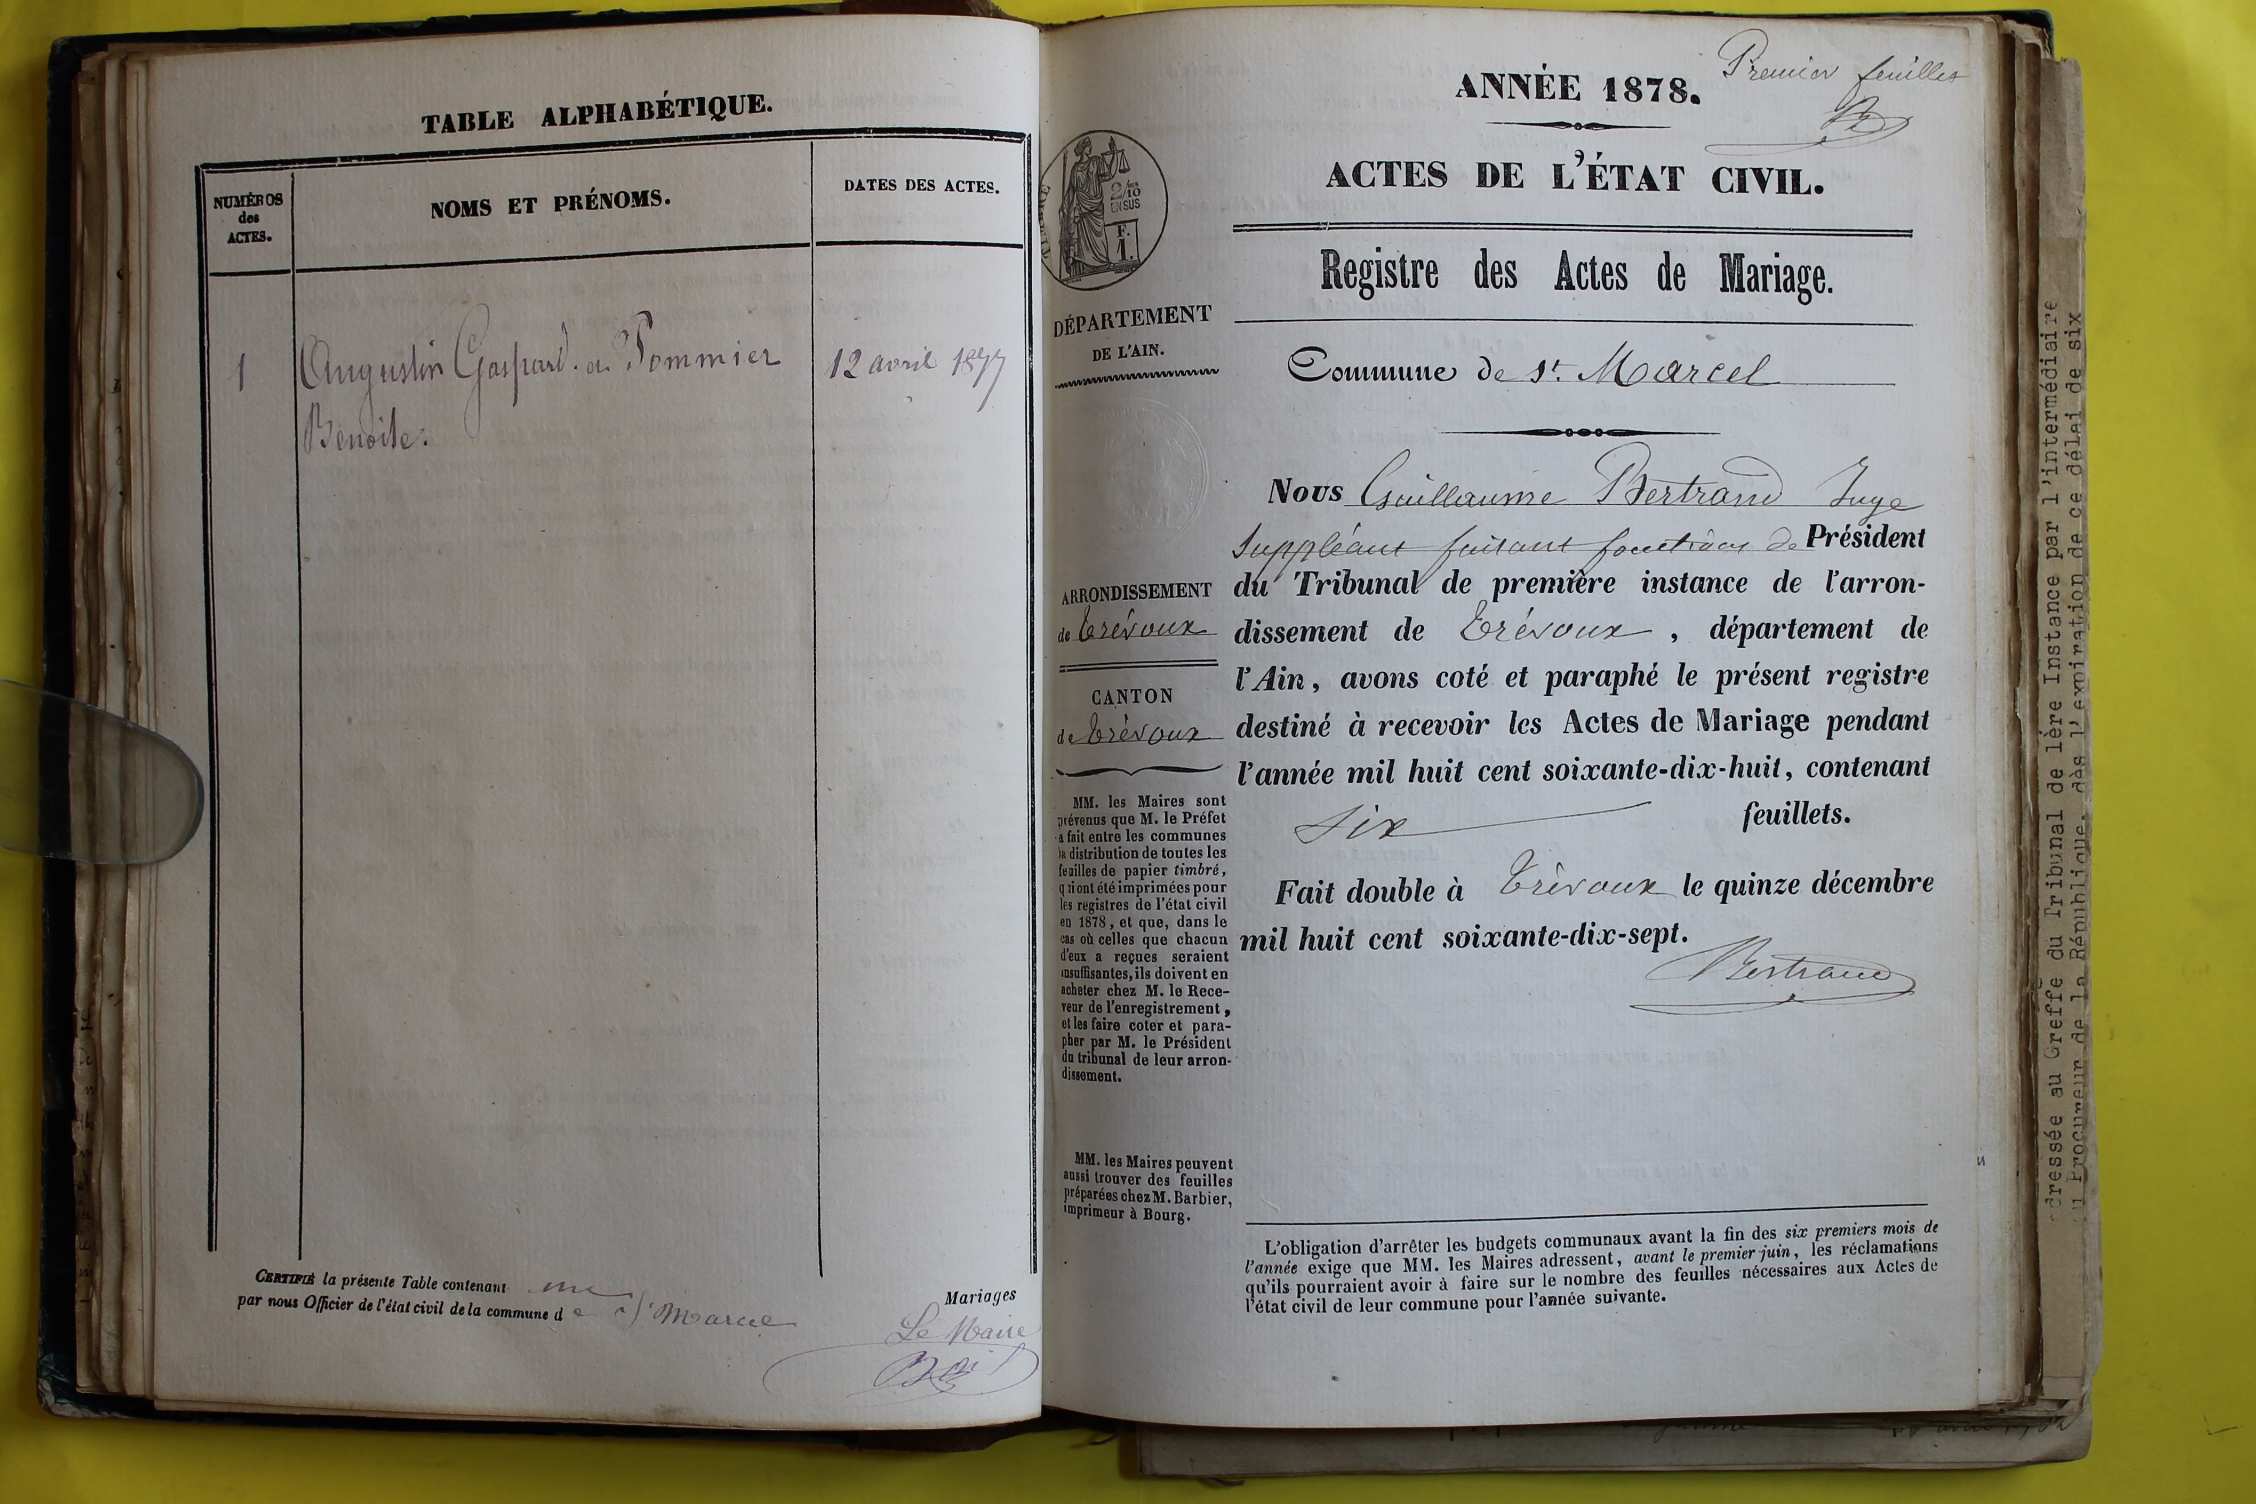 TABLE ALPHABÉTIQUE.
NUMÉROS
des
ACTES.
NOMS ET PRÉNOMS.
DATES DES ACTES.
1
Augustin Gaspard. et Pommier
12 avril 1877
Benoite.
CERTIFIÉ la présente Table contenant une
Mariages
par nous Officier de l'état civil de la commune de St Marcel
Le Maire
Premier feuillet
ANNÉE 1878.
ACTES DE L'ÉTAT CIVIL.
Registre des Actes de Mariage.
TIMBRE
2/10
EN SUS
F.
1.
DÉPARTEMENT
DE L'AIN.
Commune de St. Marcel
Nous Guillaume Bertrand Juge
Suppléant faisant fonctions de Président
du Tribunal de première instance de l'arron-
dissement de Trévoux, département de
l'Ain, avons coté et paraphé le présent registre
destiné à recevoir les Actes de Mariage pendant
l'année mil huit cent soixante-dix-huit, contenant
six feuillets.
Fait double à Trévoux le quinze décembre
mil huit cent soixante-dix-sept.
Bertrand
ARRONDISSEMENT
de Trévoux
CANTON
de Trévoux
MM. les Maires sont
prévenus que M. le Préfet
a fait entre les communes
la distribution de toutes les
feuilles de papier timbré,
qui ont été imprimées pour
les registres de l'état civil
en 1878, et que, dans le
cas où celles que chacun
d'eux a reçues seraient
insuffisantes, ils doivent en
acheter chez M. le Rece-
veur de l'enregistrement,
et les faire coter et para-
pher par M. le Président
du tribunal de leur arron-
dissement.
MM. les Maires peuvent
aussi trouver des feuilles
préparées chez M. Barbier,
imprimeur à Bourg.
L'obligation d'arrêter les budgets communaux avant la fin des six premiers mois de
l'année exige que MM. les Maires adressent, avant le premier juin, les réclamations
qu'ils pourraient avoir à faire sur le nombre des feuilles nécessaires aux Actes de
l'état civil de leur commune pour l'année suivante.
dressée au Greffe du Tribunal de 1ère Instance par l'intermédiaire
du Procureur de la République, dès l'expiration de ce délai de six